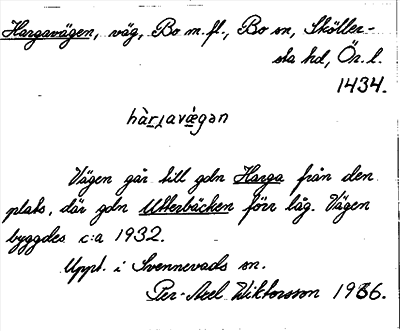 Hargavägen, väg, Bo m.fl., Bo sn, Sköller-
sta hd, Ör. l.
1434.
Vägen går till gdn Harga från den
plats, där gdn Utterbäcken förr låg. Vägen
byggdes c:a 1932.
Uppt. i Svennevads sn.
Per-Axel Wiktorsson 1966.